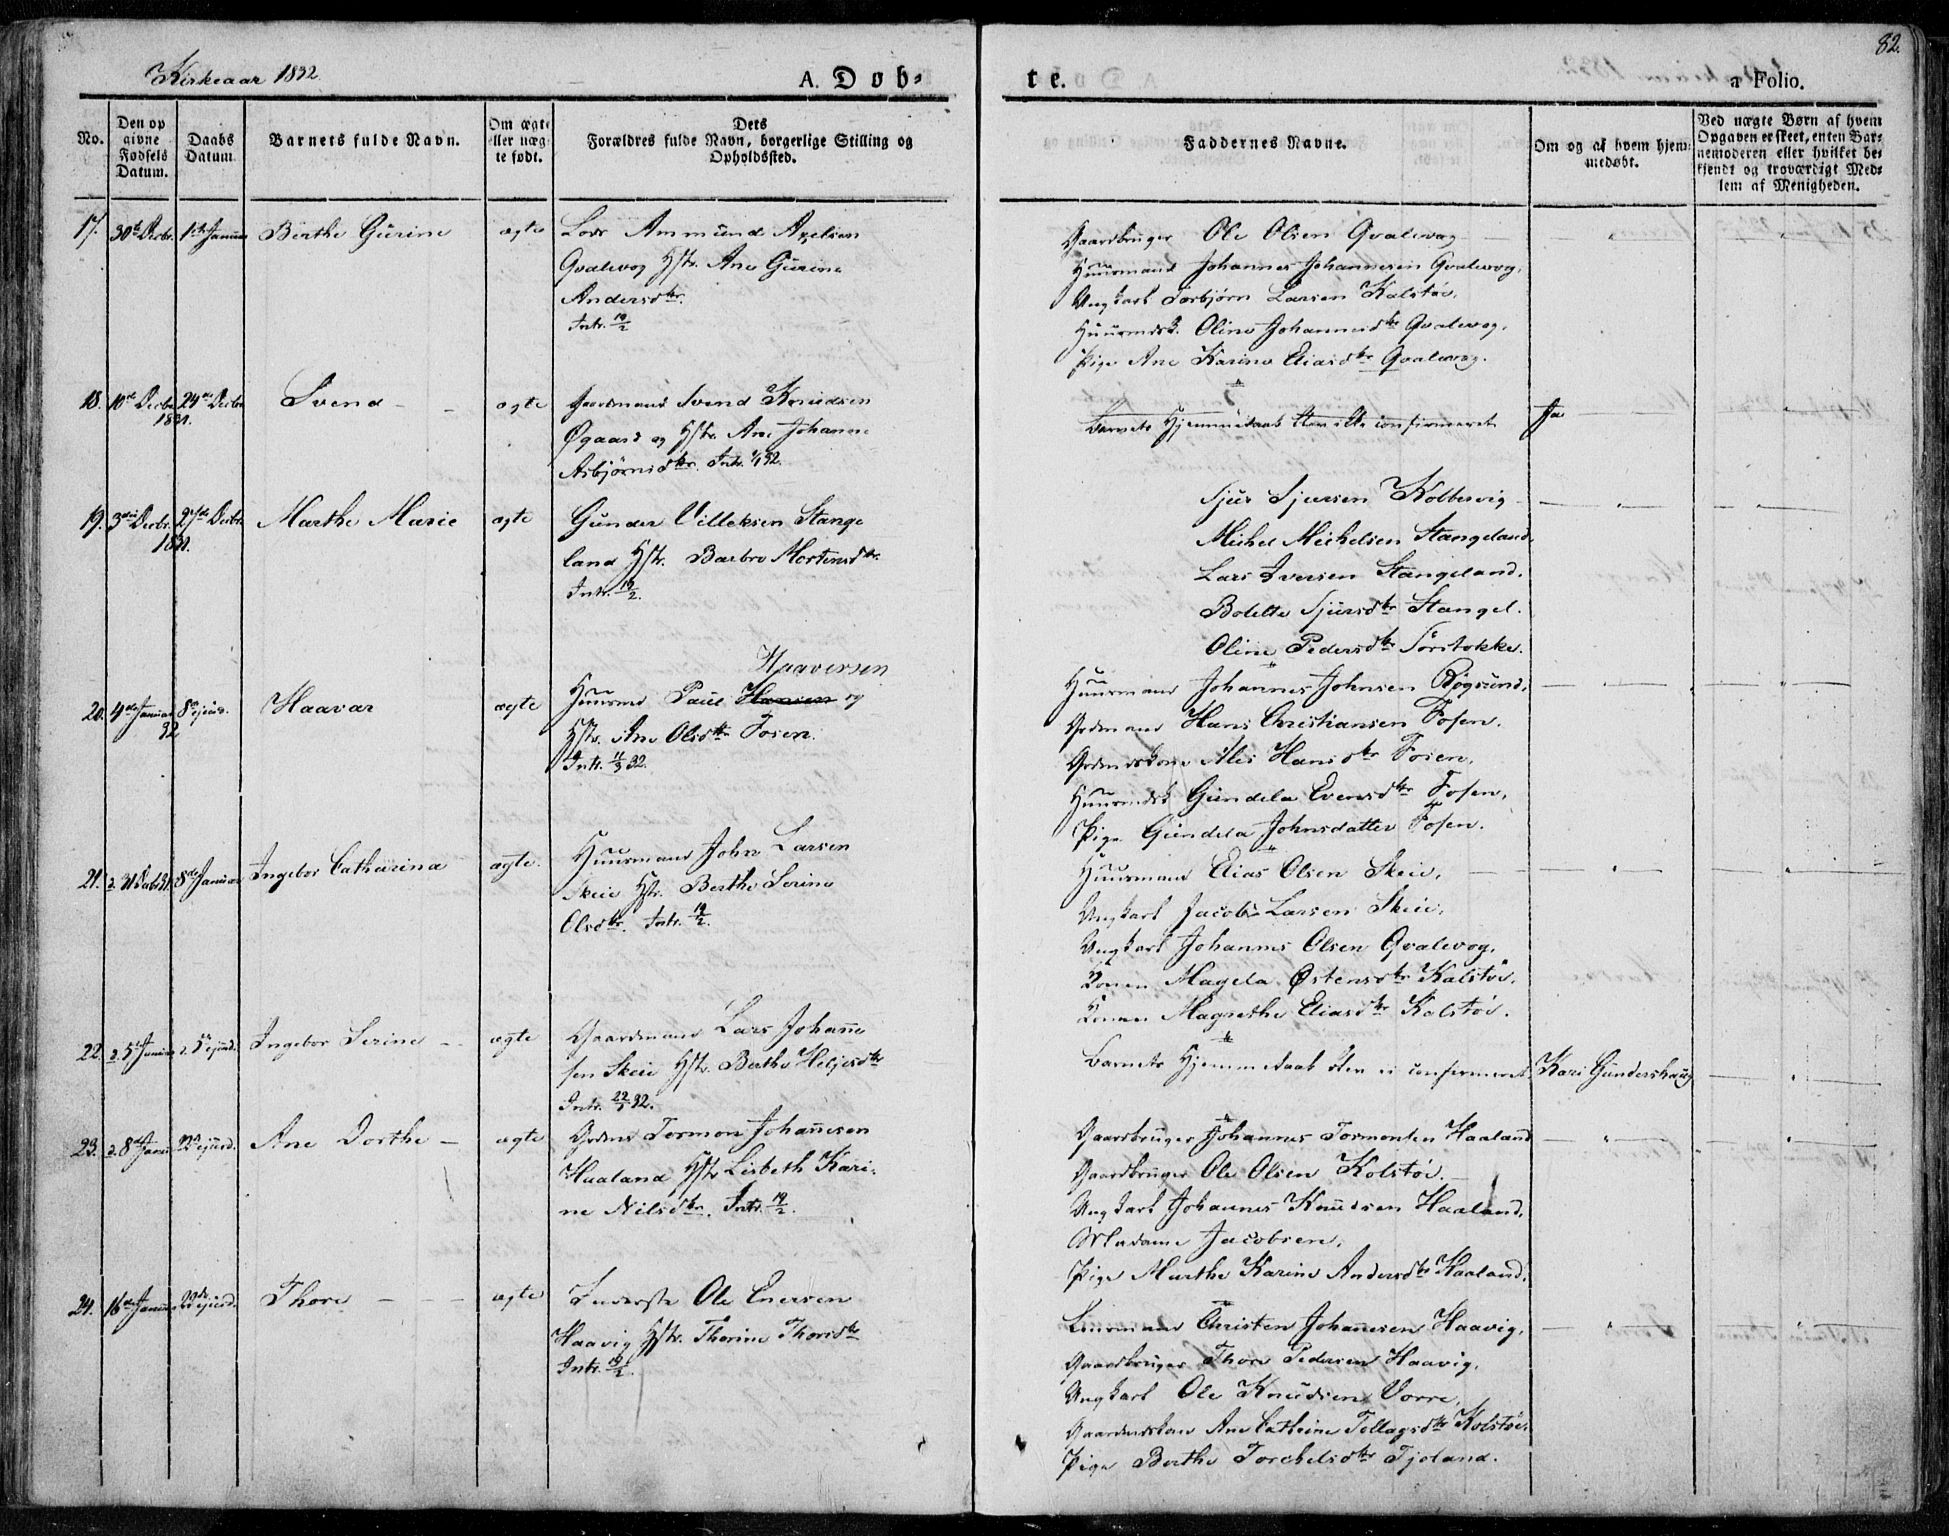 82.
Kirkeaar 1832.
A. Døb=
te.
a Folio.
No.
Den op
givne
Fødsels
Datum.
Daabs
Datum.
Barnets fulde Navn.
Om ægte
eller uæg-
te født.
Dets
Forældres fulde Navn, borgerlige Stilling og
Opholdssted.
Faddernes Navne.
Om og af hvem hjem-
medøbt.
Ved uægte Børn af hvem
Opgaven er skeet, enten Bar-
nemoderen eller hvilket be-
kjendt og troværdigt Med-
lem af Menigheden.
17. 30te Decbr. 1ste Januar Berthe Gurine ægte
Ammund Axelsen
Qvalevog Hstr. Ane Gurine
Andersdtr.
Intr. 19/2
Gaardbruger Ole Olsen Qvalevog
Huusmand Johannes Johannesen Qvalevog.
Ungkarl Torbjørn Larsen Kalstøe.
Huusmdsk. Oline Johannesdtr Qvalevog.
Pige Ane Karine Eliasdtr Qvalevog.
18. 10de Decbr. 24de Decbr.
1831.
Svend ægte
Gaardmand Svend Knudsen
Øgaard og Hstr. Ane Johanne
Asbjørnsdtr. Intr. 1/1 32.
Barnets Hjemmedaab blev ikke confirmeret
Ja
19. 3die Decbr. 27de Decbr.
1831.
Marthe Marie ægte
Gunder Villeksen Stange
land Hstr. Barbro Mortensdtr.
Intr. 19/2.
Sjur Sjursen Kolbervig
Michel Michelsen Stangeland.
Lars Iversen Stangeland.
Bolette Sjursdtr Stangel.
Oline Pedersdtr Sørstokke.
20. 4de Januar 8de ejusd.
32
Haavar ægte
Haaversen
Huusmd Paul Hansen og
Hstr. Ane Olsdtr Fosen.
Intr. 11/3 32.
Huusmand Johannes Johnsen Røgsund.
Grdmand Hans Christiansen Fosen.
Grdmdskone Alis Hansdtr Fosen.
Huusmdsk Gundela Evensdtr Fosen.
Pige Gundela Johnsdatter Fosen.
21. 8de Januar Ingebor Catharina ægte.
Huusmand John Larsen
Skeie Hstr. Berthe Serine
Olsdtr. Intr. 19/2.
Huusmand Elias Olsen Skeie.
Ungkarl Jacob Larsen Skeie.
Ungkarl Johannes Olsen Qvalevog.
Konen Magela Østensdtr Kalstøe.
Konen Magrethe Eliasdtr Kolstøe.
22. d. 5te Januar d. 5te ejusd. Ingebor Serine ægte
Gaardmand Lars Johanne
sen Skeie Hstr. Berthe Heljesdtr
Intr. 22/1 32.
Barnets Hjemmedaab blev ei confirmeret.
Kari Gundershaug
23. d. 8de Januar 22de ejusd. Ane Dorthe ægte
Grdmd Tormon Johannesen
Haaland Hstr Lisbeth Kari-
ne Nilsdtr. Intr. 19/2.
Gaardbruger Johannes Tormonsen Haaland
Gaardbruger Ole Olsen Kolstøe.
Ungkarl Johannes Knudsen Haaland.
Madame Jacobsen.
Pige Marthe Karine Andersdtr Haaland.
24. 16de Januar 22de ejusd. Thore ægte
Inderste Ole Enersen
Haavig Hstr. Thorine Thorsdtr
Intr. 19/2.
Christen Johannesen Haavig.
Gaardbruger Thore Pedersen Haavig.
Ungkarl Ole Knudsen Vorre.
Gaardmdskone Ane Cathrine Tollagsdtr Kolstøe.
Pige Berthe Torchelsdtr Tjoland.